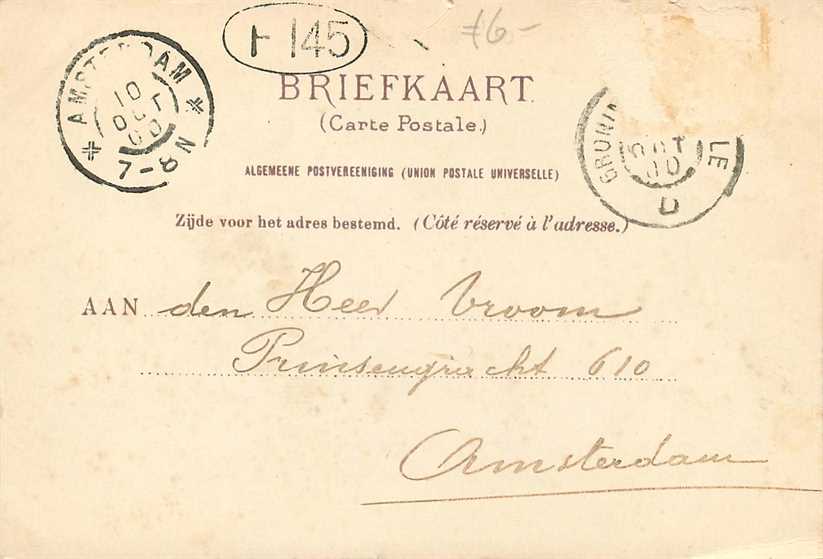 F 145
f6-
BRIEFKAART.
(Carte Postale.)
AMSTERDAM
10
OCT
00
7-8N
OCT
00
LE
D
ALGEMEENE POSTVEREENIGING (UNION POSTALE UNIVERSELLE)
Zijde voor het adres bestemd. (Côté réservé à l'adresse.)
AAN den Heer Vroom
Prinsengracht 610
Amsterdam